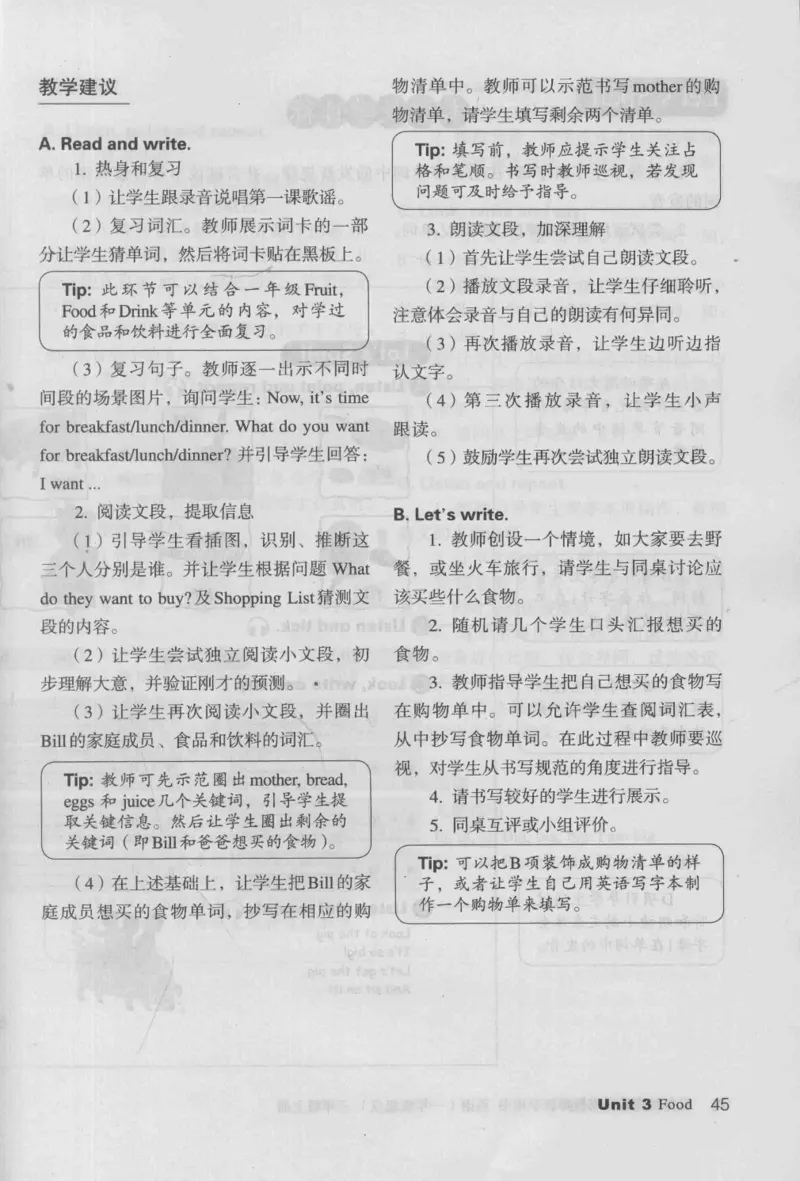 教学建议
A. Read and write.
1. 热身和复习
（1）让学生跟录音说唱第一课歌谣。
（2）复习词汇。教师展示词卡的一部
分让学生猜单词，然后将词卡贴在黑板上。
Tip: 此环节可以结合一年级 Fruit,
Food 和 Drink 等单元的内容，对学过
的食品和饮料进行全面复习。
（3）复习句子。教师逐一出示不同时
间段的场景图片，询问学生：Now, it's time
for breakfast/lunch/dinner. What do you want
for breakfast/lunch/dinner? 并引导学生回答：
I want ...
2. 阅读文段，提取信息
（1）引导学生看插图，识别、推断这
三个人分别是谁。并让学生根据问题 What
do they want to buy? 及 Shopping List 猜测文
段的内容。
（2）让学生尝试独立阅读小文段，初
步理解大意，并验证刚才的预测。
（3）让学生再次阅读小文段，并圈出
Bill的家庭成员、食品和饮料的词汇。
Tip: 教师可先示范圈出 mother, bread,
eggs 和 juice 几个关键词，引导学生提
取关键信息。然后让学生圈出剩余的
关键词（即Bill和爸爸想买的食物）。
（4）在上述基础上，让学生把Bill的家
庭成员想买的食物单词，抄写在相应的购
物清单中。教师可以示范书写mother的购
物清单，请学生填写剩余两个清单。
Tip: 填写前，教师应提示学生关注占
格和笔顺。书写时教师巡视，若发现
问题可及时给予指导。
3. 朗读文段，加深理解
（1）首先让学生尝试自己朗读文段。
（2）播放文段录音，让学生仔细聆听，
注意体会录音与自己的朗读有何异同。
（3）再次播放录音，让学生边听边指
认文字。
（4）第三次播放录音，让学生小声
跟读。
（5）鼓励学生再次尝试独立朗读文段。
B. Let's write.
1. 教师创设一个情境，如大家要去野
餐，或坐火车旅行，请学生与同桌讨论应
该买些什么食物。
2. 随机请几个学生口头汇报想买的
食物。
3. 教师指导学生把自己想买的食物写
在购物单中。可以允许学生查阅词汇表，
从中抄写食物单词。在此过程中教师要巡
视，对学生从书写规范的角度进行指导。
4. 请书写较好的学生进行展示。
5. 同桌互评或小组评价。
Tip: 可以把B项装饰成购物清单的样
子，或者让学生自己用英语写字本制
作一个购物单来填写。
Unit 3 Food 45